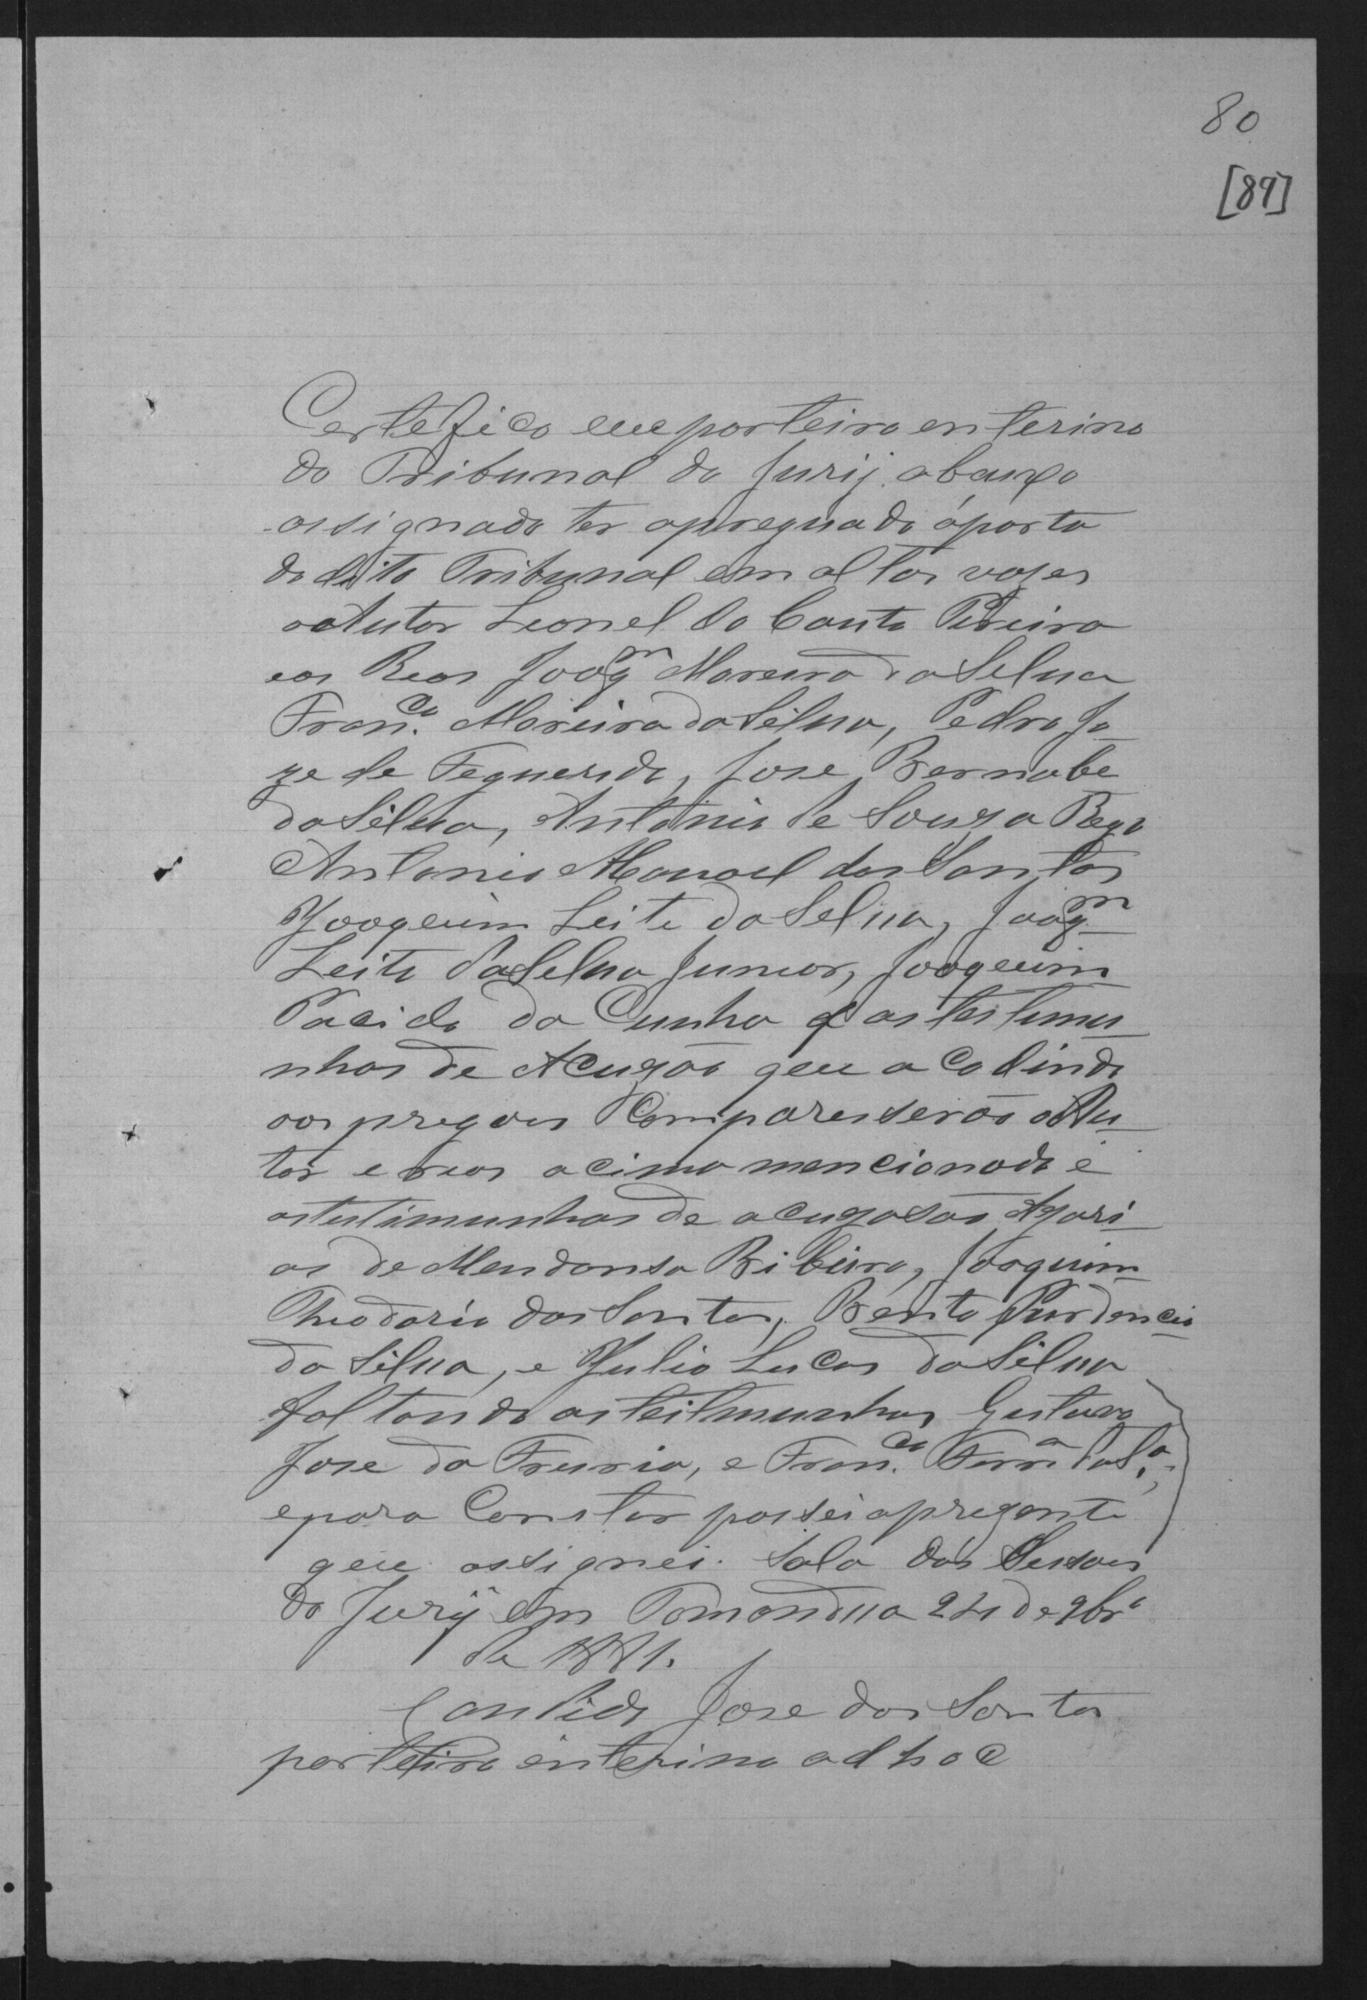 80
[89]
Certefico eu porteiro enterino
do Tribunal do Jurij abauxo
assignado ter apreguado áporta
do dito Tribunal em altas vozes
o Autor Leonel do Canto Pereira
eos Reos Joaqm Moreira da Selva
Franco. Moreira da Silva, Pedro Jo
ze de Feguerido, Jose Bernabe
da Silva, Antonio de Souza Rego
Antonio Manoel dos Santos
Joaqeuim Leite da Selva, Joaqm
Leite da Selva Junior, Joaqeuim
Pacido da Cunha e as testemu
nhas de Acuzão qeu a Codindo
aos pregois Comparesserão o Au
tor e reos acima mencionado e
as testimunhas de acuzasão
as de Mendonsa Ribeiro, Joaquim
Theodorio dos Santos, Bento Purdencio
da Silva, e Julio Lucas da Silva
faltando as teitmunhas Gustavo
Jose da , e Franco. Ferra da Sa,
e para Constar passei aprezente
qeu assignei. Sala das Sessois
do Jurÿ em 24 de 9bro
de 1881.
Candido Jose dos Santos
porteiro enterino ad hoc